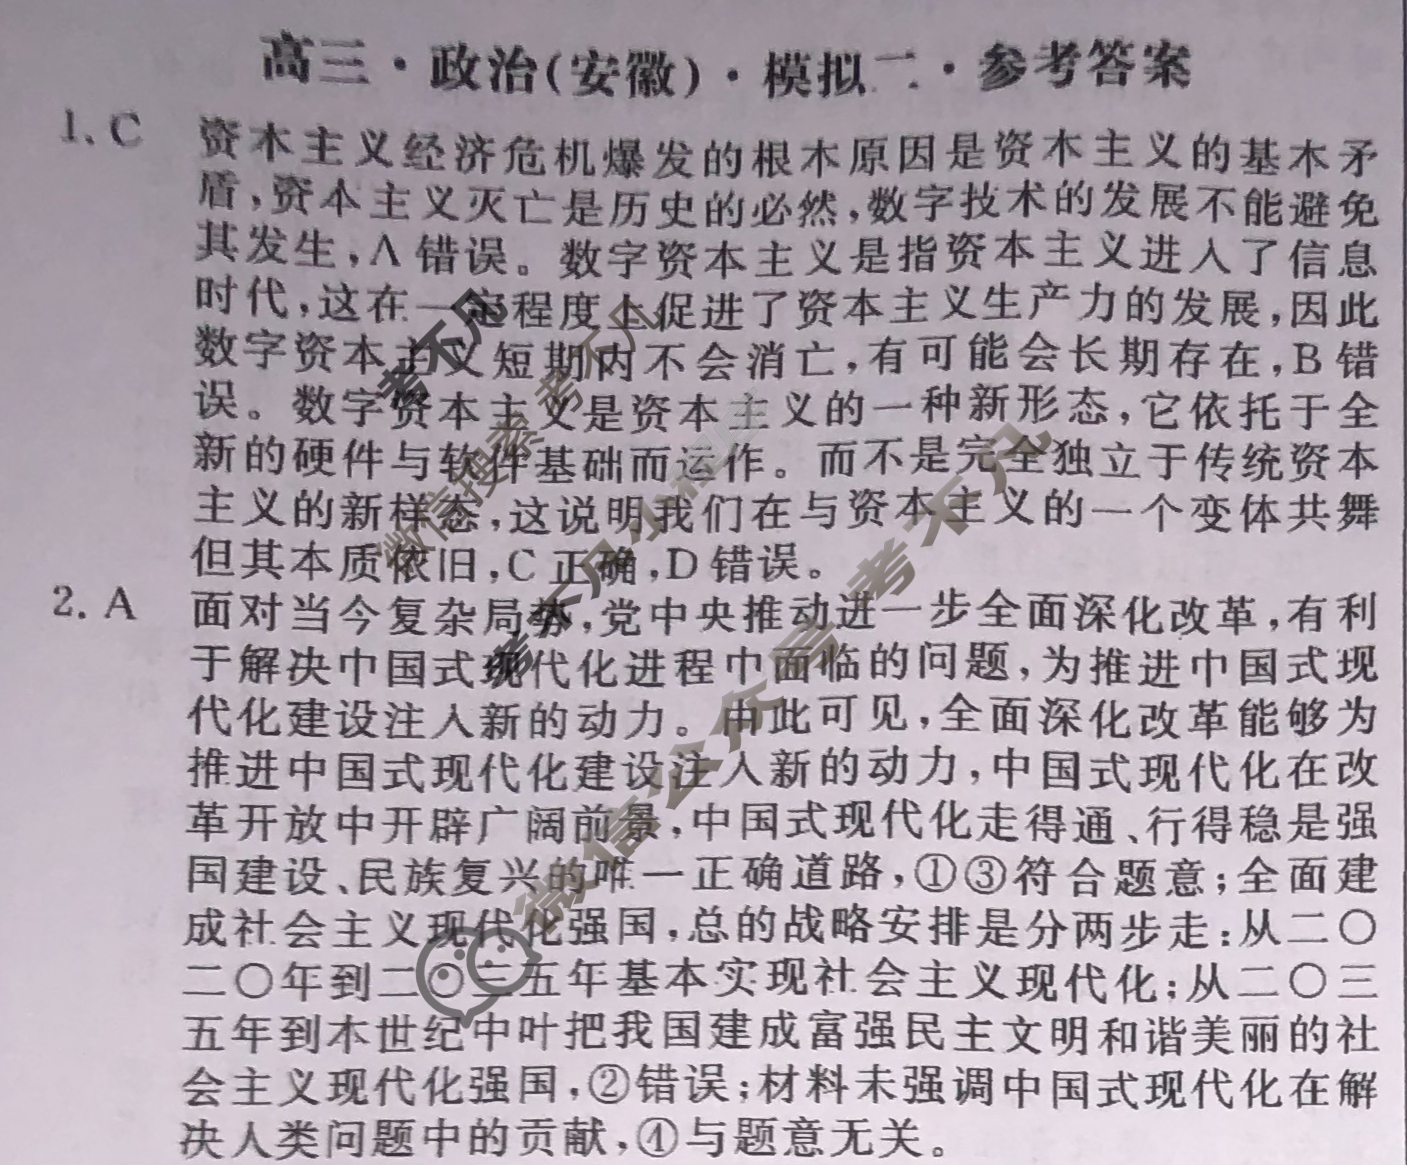 高三·政治(安徽)·模拟二·参考答案
1. C 资本主义经济危机爆发的根本原因是资本主义的基本矛
盾,资本主义灭亡是历史的必然,数字技术的发展不能避免
其发生,A错误。数字资本主义是指资本主义进入了信息
时代,这在一定程度上促进了资本主义生产力的发展,因此
数字资本主义短期内不会消亡,有可能会长期存在,B错
误。数字资本主义是资本主义的一种新形态,它依托于全
新的硬件与软件基础而运作。而不是完全独立于传统资本
主义的新样态,这说明我们在与资本主义的一个变体共舞
但其本质依旧,C正确,D错误。
2. A 面对当今复杂局势,党中央推动进一步全面深化改革,有利
于解决中国式现代化进程中面临的问题,为推进中国式现
代化建设注入新的动力。由此可见,全面深化改革能够为
推进中国式现代化建设注入新的动力,中国式现代化在改
革开放中开辟广阔前景,中国式现代化走得通、行得稳是强
国建设、民族复兴的唯一正确道路,①③符合题意;全面建
成社会主义现代化强国,总的战略安排是分两步走:从二〇
二〇年到二〇三五年基本实现社会主义现代化;从二〇三
五年到本世纪中叶把我国建成富强民主文明和谐美丽的社
会主义现代化强国,②错误;材料未强调中国式现代化在解
决人类问题中的贡献,④与题意无关。
考不凡
微信搜索考不凡
考不凡小
微信公众号 考不凡